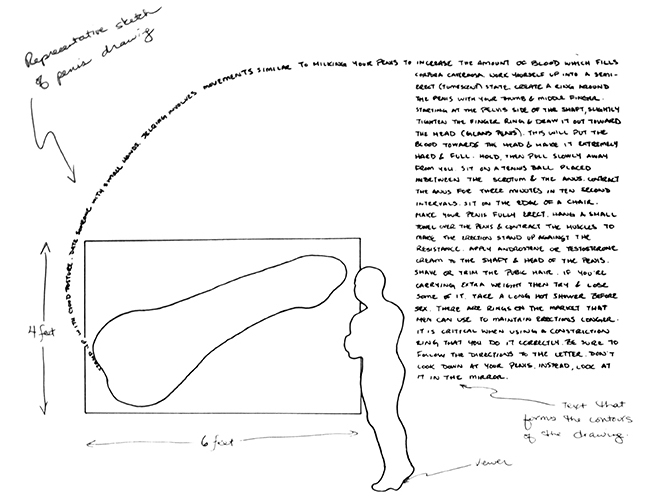 Representative sketch
of penis drawing
STAND UP WITH GOOD POSTURE. DATE SOMEONE WITH SMALL HANDS. JELQING INVOLVES MOVEMENTS SIMILAR TO MILKING YOUR PENIS TO INCREASE THE AMOUNT OF BLOOD WHICH FILLS
CORPORA CAVERNOSA. WORK YOURSELF UP INTO A SEMI-
ERECT (TUMESCENT) STATE. CREATE A RING AROUND
THE PENIS WITH YOUR THUMB & MIDDLE FINGER.
STARTING AT THE PELVIS SIDE OF THE SHAFT, SLIGHTLY
TIGHTEN THE FINGER RING & DRAW IT OUT TOWARD
THE HEAD (GLANS PENIS). THIS WILL PUT THE
BLOOD TOWARDS THE HEAD & MAKE IT EXTREMELY
HARD & FULL. HOLD, THEN PULL SLOWLY AWAY
FROM YOU. SIT ON A TENNIS BALL PLACED
INBETWEEN THE SCROTUM & THE ANUS. CONTRACT
THE ANUS FOR THREE MINUTES IN TEN SECOND
INTERVALS. SIT ON THE EDGE OF A CHAIR.
MAKE YOUR PENIS FULLY ERECT. HANG A SMALL
TOWEL OVER THE PENIS & CONTRACT THE MUSCLES TO
MAKE THE ERECTION STAND UP AGAINST THE
RESISTANCE. APPLY ANDROSTENE OR TESTOSTERONE
CREAM TO THE SHAFT & HEAD OF THE PENIS.
SHAVE OR TRIM THE PUBIC HAIR. IF YOU'RE
CARRYING EXTRA WEIGHT THEN TRY & LOSE
SOME OF IT. TAKE A LONG HOT SHOWER BEFORE
SEX. THERE ARE RINGS ON THE MARKET THAT
MEN CAN USE TO MAINTAIN ERECTIONS LONGER.
IT IS CRITICAL WHEN USING A CONSTRICTION
RING THAT YOU DO IT CORRECTLY. BE SURE TO
FOLLOW THE DIRECTIONS TO THE LETTER. DON'T
LOOK DOWN AT YOUR PENIS, INSTEAD, LOOK AT
IT IN THE MIRROR.
4 feet
6 feet
Text that
forms the contours
of the drawing.
viewer